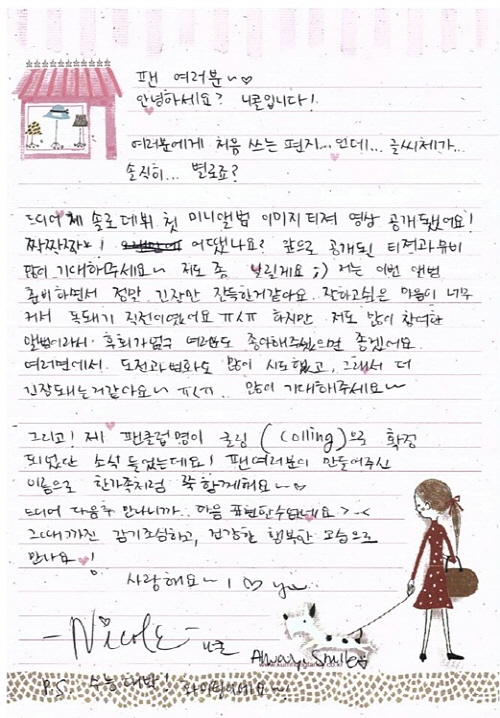 팬 여러분~♡
안녕하세요? 니콜입니다!
여러분에게 처음 쓰는 편지...인데... 글씨체가...
솔직히... 별로죠?
드디어 제 솔로데뷔 첫 미니앨범 이미지 티져 영상 공개됐어요!
짝짝짝! 어땠나요? 앞으로 공개될 티져과 뮤비
많이 기대하주세요~ 저도 좀 떨릴게요 ;) 저는 이번 앨범
준비하면서 정말 긴장만 잔뜩한거같아요. 잘하고싶은 마음이 너무
커서 폭돼기 직전이였어요 ㅠㅅㅠ 하지만 저도 많이 참여한
앨범이라서 후회가없구 여러분도 좋아해주셨으면 좋겠어요.
여러면에서 도전과 변화도 많이 시도했고, 그래서 더
긴장돼는거같아요~ ㅠㅅㅠ 많이 기대해주세요~
그리고! 제 팬클럽명이 콜링 (Colling)으로 확정
되었단 소식 들었는데요! 팬여러분이 만들어주신
이름으로 한가족처럼 쭉 함께해요~
드디어 다음주 만나니까.. 마음 표현할수있네요 >.<
그때까진 감기조심하고, 건강한 행복한 모습으로
만나요♥!
사랑해요~ I ♡ you
-Nicole- 니콜
Always Smiles
P.S. 수능 대박! 화이팅이에요~!